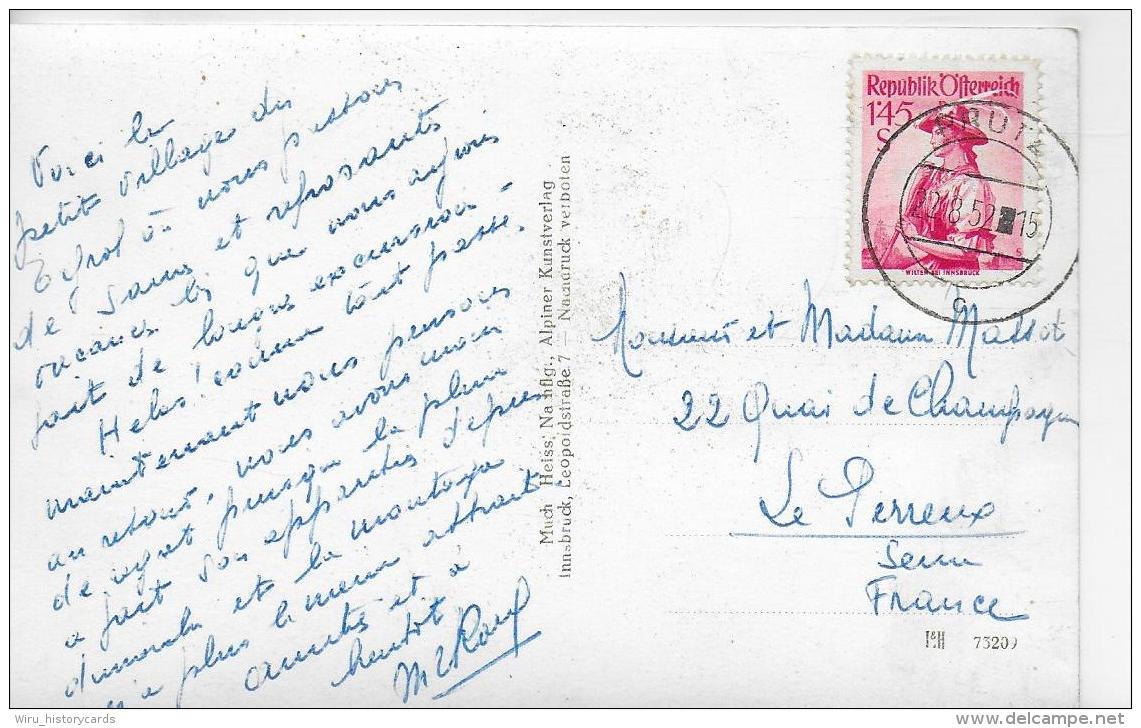 Voici le
petit village du
Tyrol où nous passons
de saines et reposantes
vacances
lors que nous ayons
fait de longues excursions
Helas! comme tout passe.
maintenant nous pensons
au retour, nous avons moins
de regret puisque la pluie
a fait son apparition depuis
dimanche et la montagne
n'a plus le meme attrait.
amitiés et à
bientôt
Much Heiss' Nachflg., Alpiner Kunstverlag
Innsbruck, Leopoldstraße 7 — Nachdruck verboten
Republik Österreich
1'45
S
WILTEN BEI INNSBRUCK
PRUTZ
22.8.52 15
c
Monsieur et Madame Massot
22 Quai de Champagne
Le Perreux
Seine
France
73209
Wiru_historycards
www.delcampe.net